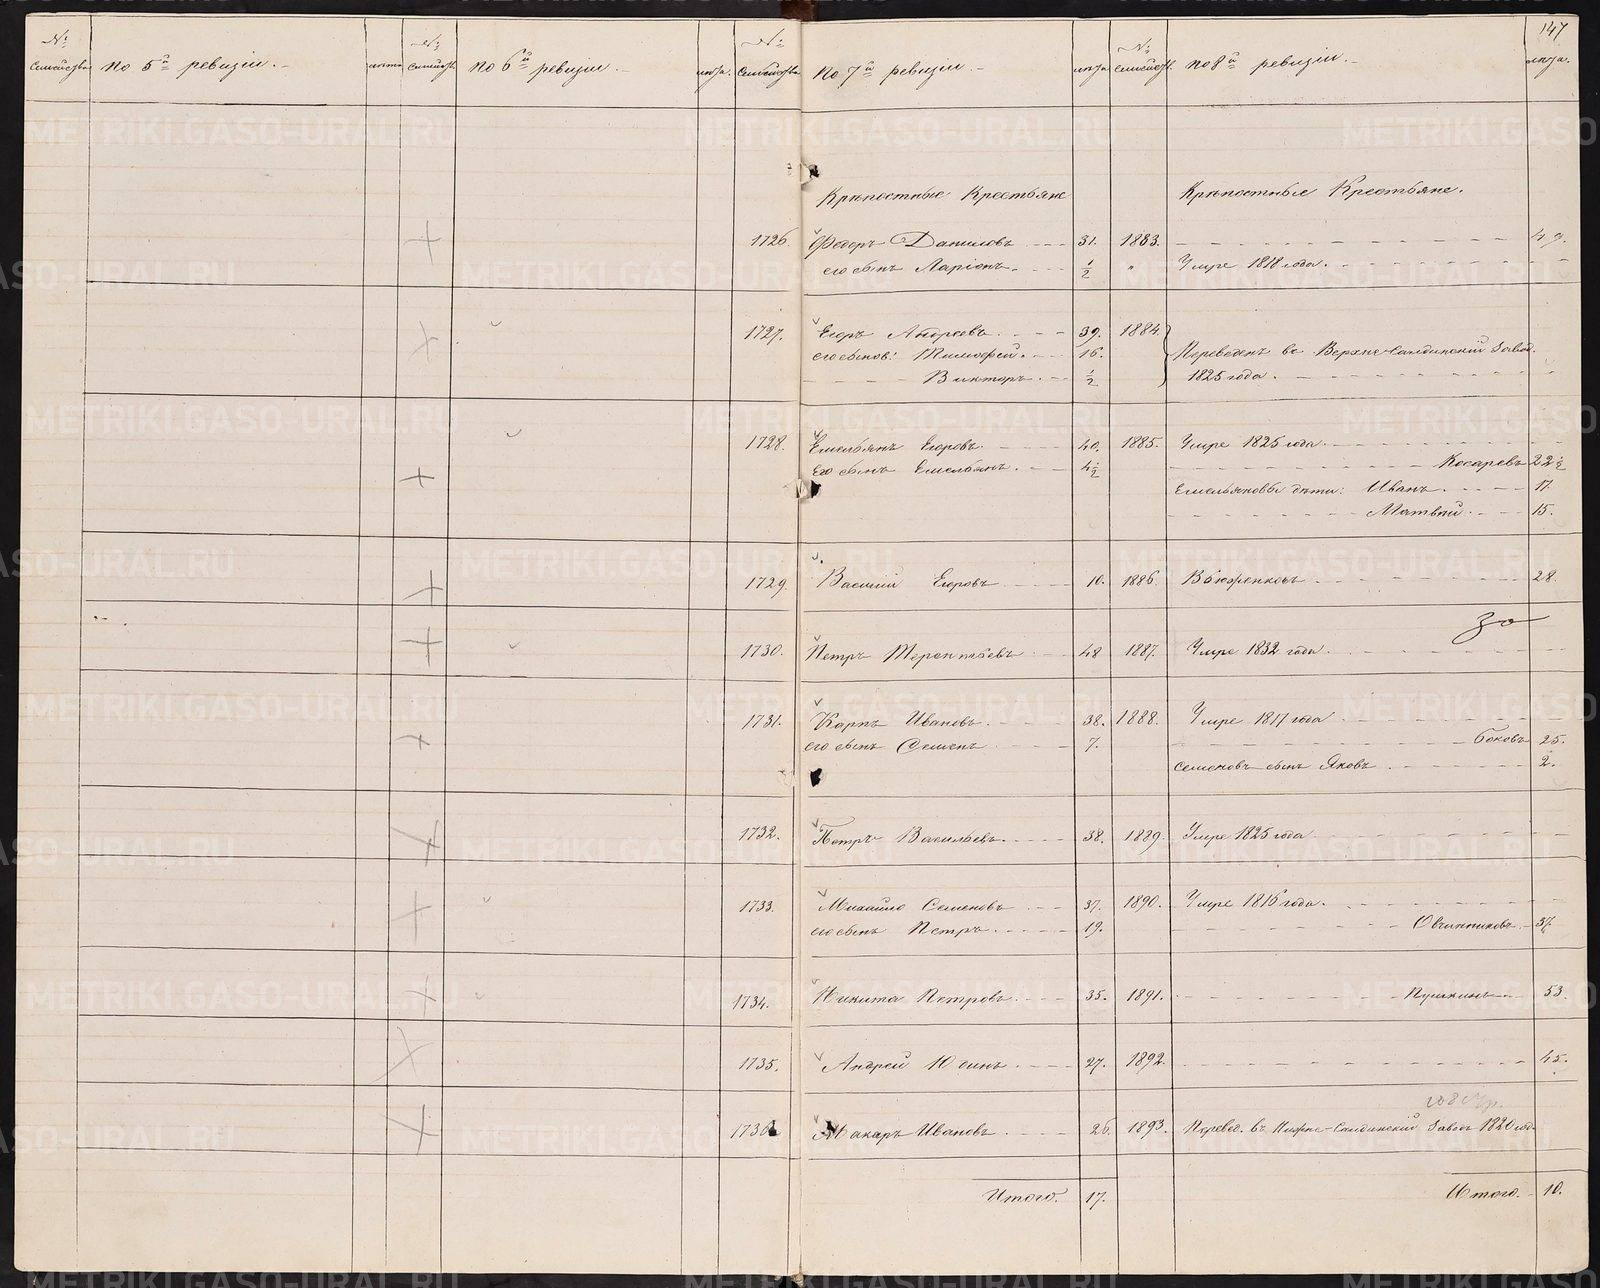 147
№ семейства
по 5й ревизіи.
лѣта
№ семейств.
по 6й ревизіи.
лѣта.
№ семейства
по 7й ревизіи.
лѣта
№ семейств.
по 8й ревизіи.
лѣта.
Крѣпостные Крестьяне
Крѣпостные Крестьяне.
1726. Федоръ Даниловъ 31. 1883. 49.
его сынъ Ларіонъ. 1/2 " Умре 1818 года.
1727. Егоръ Андреевъ 39. 1884.
его сынов: Тимофей. 16. Переведенъ въ Верхне-Салдинскій завод.
Викторъ. 1/2 1825 года.
1728. Емельянъ Егоровъ 40. 1885. Умре 1825 года.
Его сынъ Емельянъ. 4 1/2 Косаревъ 22 1/2
Емельяновы дѣти: Иванъ 17.
Матвѣй 15.
1729. Василій Егоровъ 10. 1886. 28.
30
1730. Петръ Терентьевъ 48 1887. Умре 1832 года.
1731. Карпъ Ивановъ 38. 1888. Умре 1817 года
его сынъ Семенъ 7. Боковъ 25.
Семеновъ сынъ Яковъ 2.
1732. Петръ Васильевъ. 38. 1889. Умре 1825 года
1733. Михайло Семеновъ 37. 1890. Умре 1816 года.
его сынъ Петръ. 19. Овчинниковъ. 37.
1734. Никита Петровъ. 35. 1891. Пушкинъ 53.
1735. Андрей Юдинъ 27. 1892. 45.
1736. Макаръ Ивановъ 26. 1893. Перевед. въ Нижне-Салдинскій заводъ 1820 год.
Итого. 17. Итого. 10.
METRIKI.GASO-URAL.RU